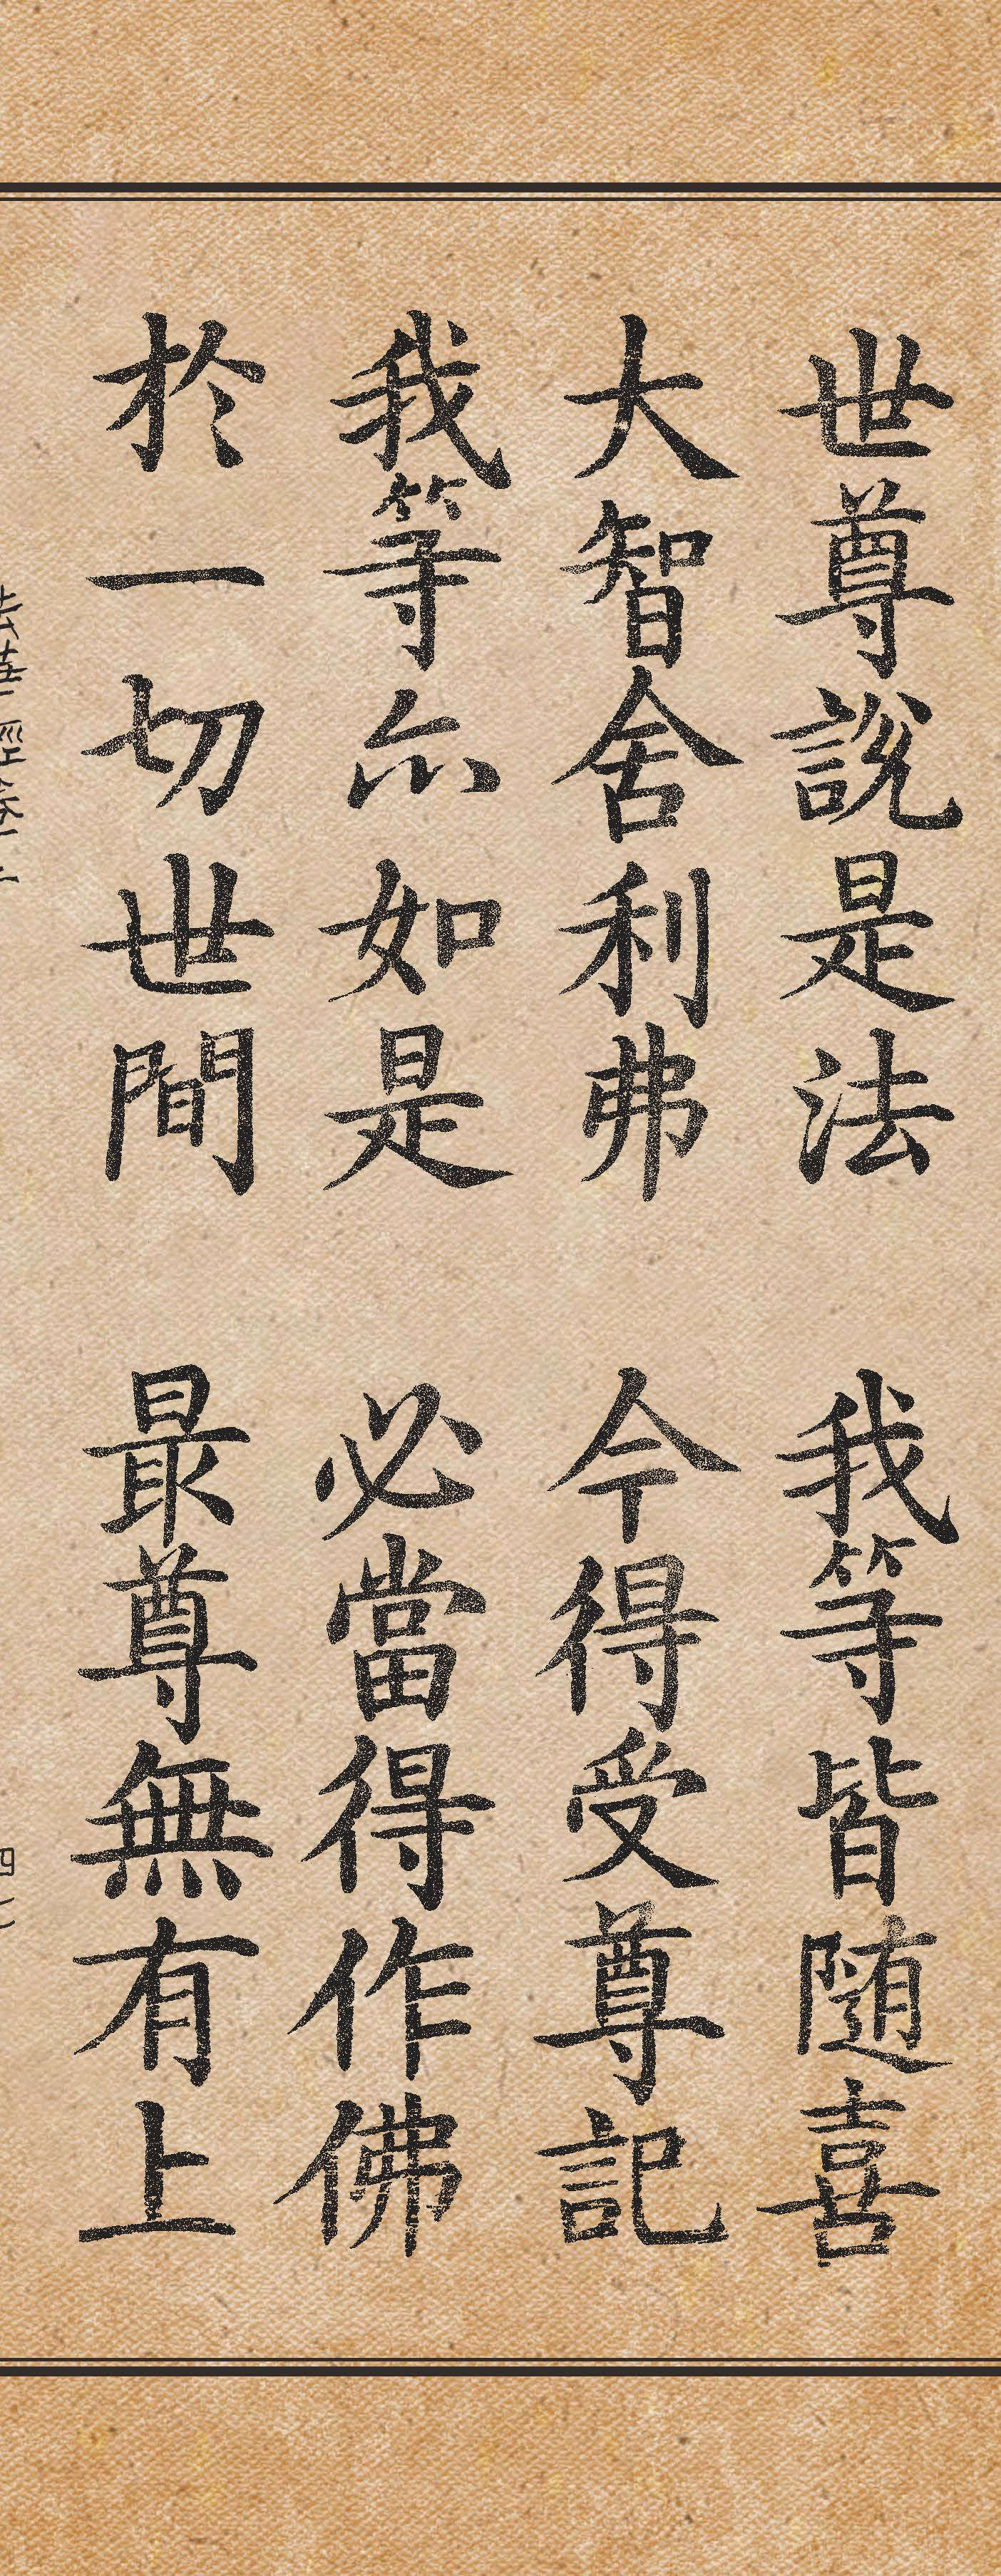 世尊說是法　我等皆随喜
大智舍利弗　今得受尊記
我等亦如是　必當得作佛
於一切世間　最尊無有上